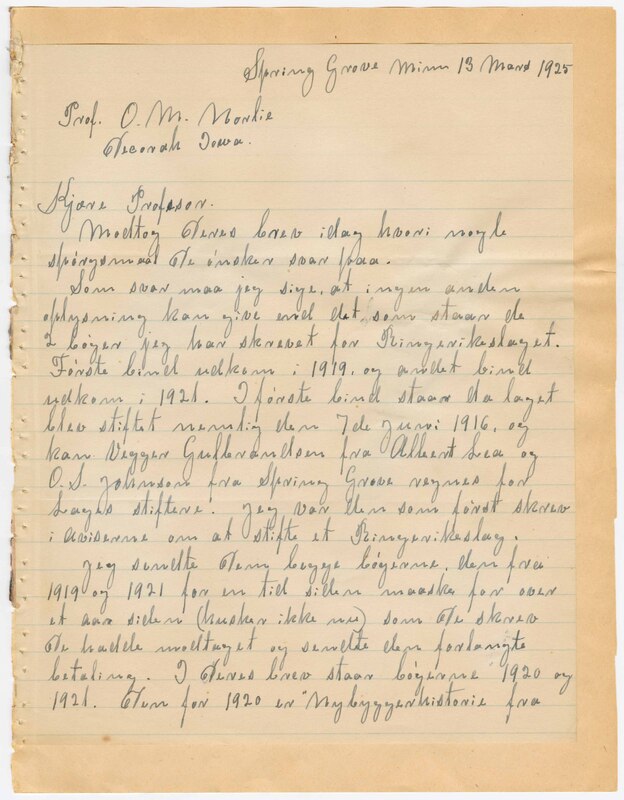 Spring Grove Minn 13 Mars 1925
Prof. O. M. Norlie
Decorah Iowa.
Kjære Profesor.
Modtog Deres brev idag hvori nogle
spörgsmaal De önsker svar paa.
Som svar maa jeg sige, at ingen anden
oplysning kan give end det som staar de
2 böger jeg har skrevet for Ringerikeslaget.
Förste bind udkom i 1919, og andet bind
udkom i 1921. I förste bind staar da laget
blev stiftet nemlig den 7de Juni 1916, og
kan Vegger Gulbrandsen fra Albert Lea og
O. S. Johnson fra Spring Grove regnes for
Lagets stiftere. Jeg var den som först skrev
i aviserne om at stifte et Ringerikeslag.
Jeg sendte Dem begge bögerne, den fra
1919 og 1921 for en tid siden maaske for over
et aar siden (husker ikke nu) som De skrev
De hadde modtaget og sendte den forlangte
betaling. I Deres brev staar bögerne 1920 og
1921. Den for 1920 er "Nybyggerhistorie fra